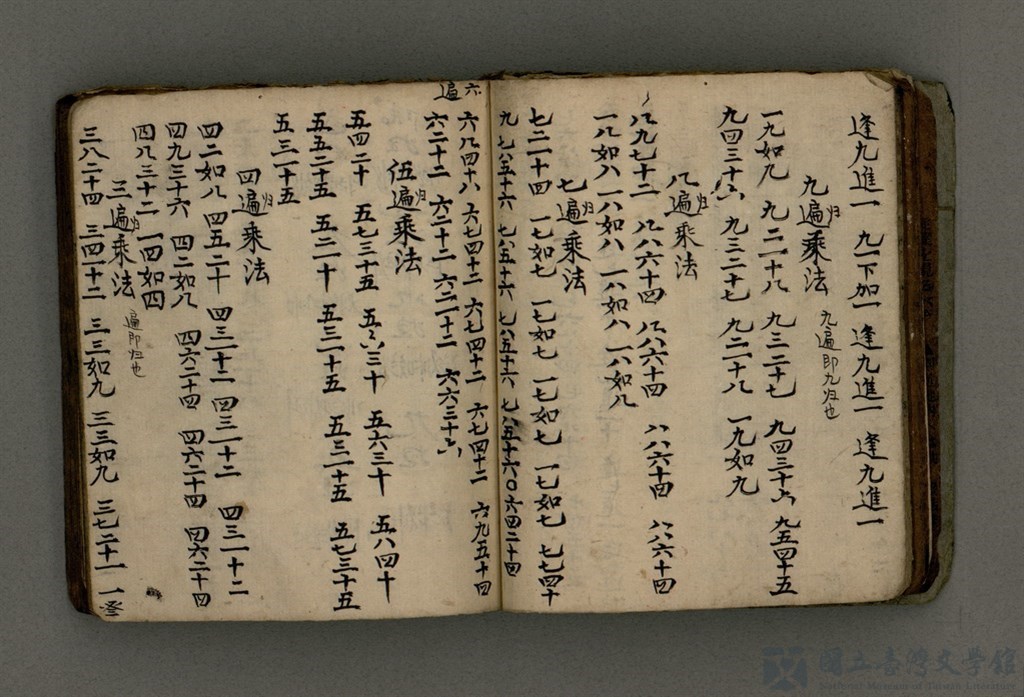 逢九進一 九一下加一 逢九進一 逢九進一
九遍归乘法 九遍即九归也
一九如九 九二十八 九三二十七 九四三十六 九五四十五
九四三十六 九三二十七 九二十八 一九如九
八遍归乘法
八九七十二 八八六十四 八八六十四 八八六十四 八八六十四
一八如八 一八如八 一八如八 一八如八
七遍归乘法
七二十四 一七如七 一七如七 一七如七 一七如七 七七四十
九 七八五十六 七八五十六 七八五十六 七八五十六〇六四二十四
六遍
六八四十八 六七四十二 六七四十二 六七四十二 六九五十四
六二十二 六二十二 六二十二 六六三十六
伍遍归乘法
五四二十 五七三十五 五六三十 五六三十 五八四十
五五二十五 五二十 五三一十五 五三一十五 五七三十五
五三一十五
四遍归乘法
四二如八 四五二十 四三十二 四三一十二 四三一十二
四九三十六 四二如八 四六二十四 四六二十四 四六二十四
四八三十二 一四如四
三遍归乘法 遍即归也
三八二十四 三四一十二 三三如九 三三如九 三七二十一 一
國立臺灣文學館
National Museum of Taiwan Literature